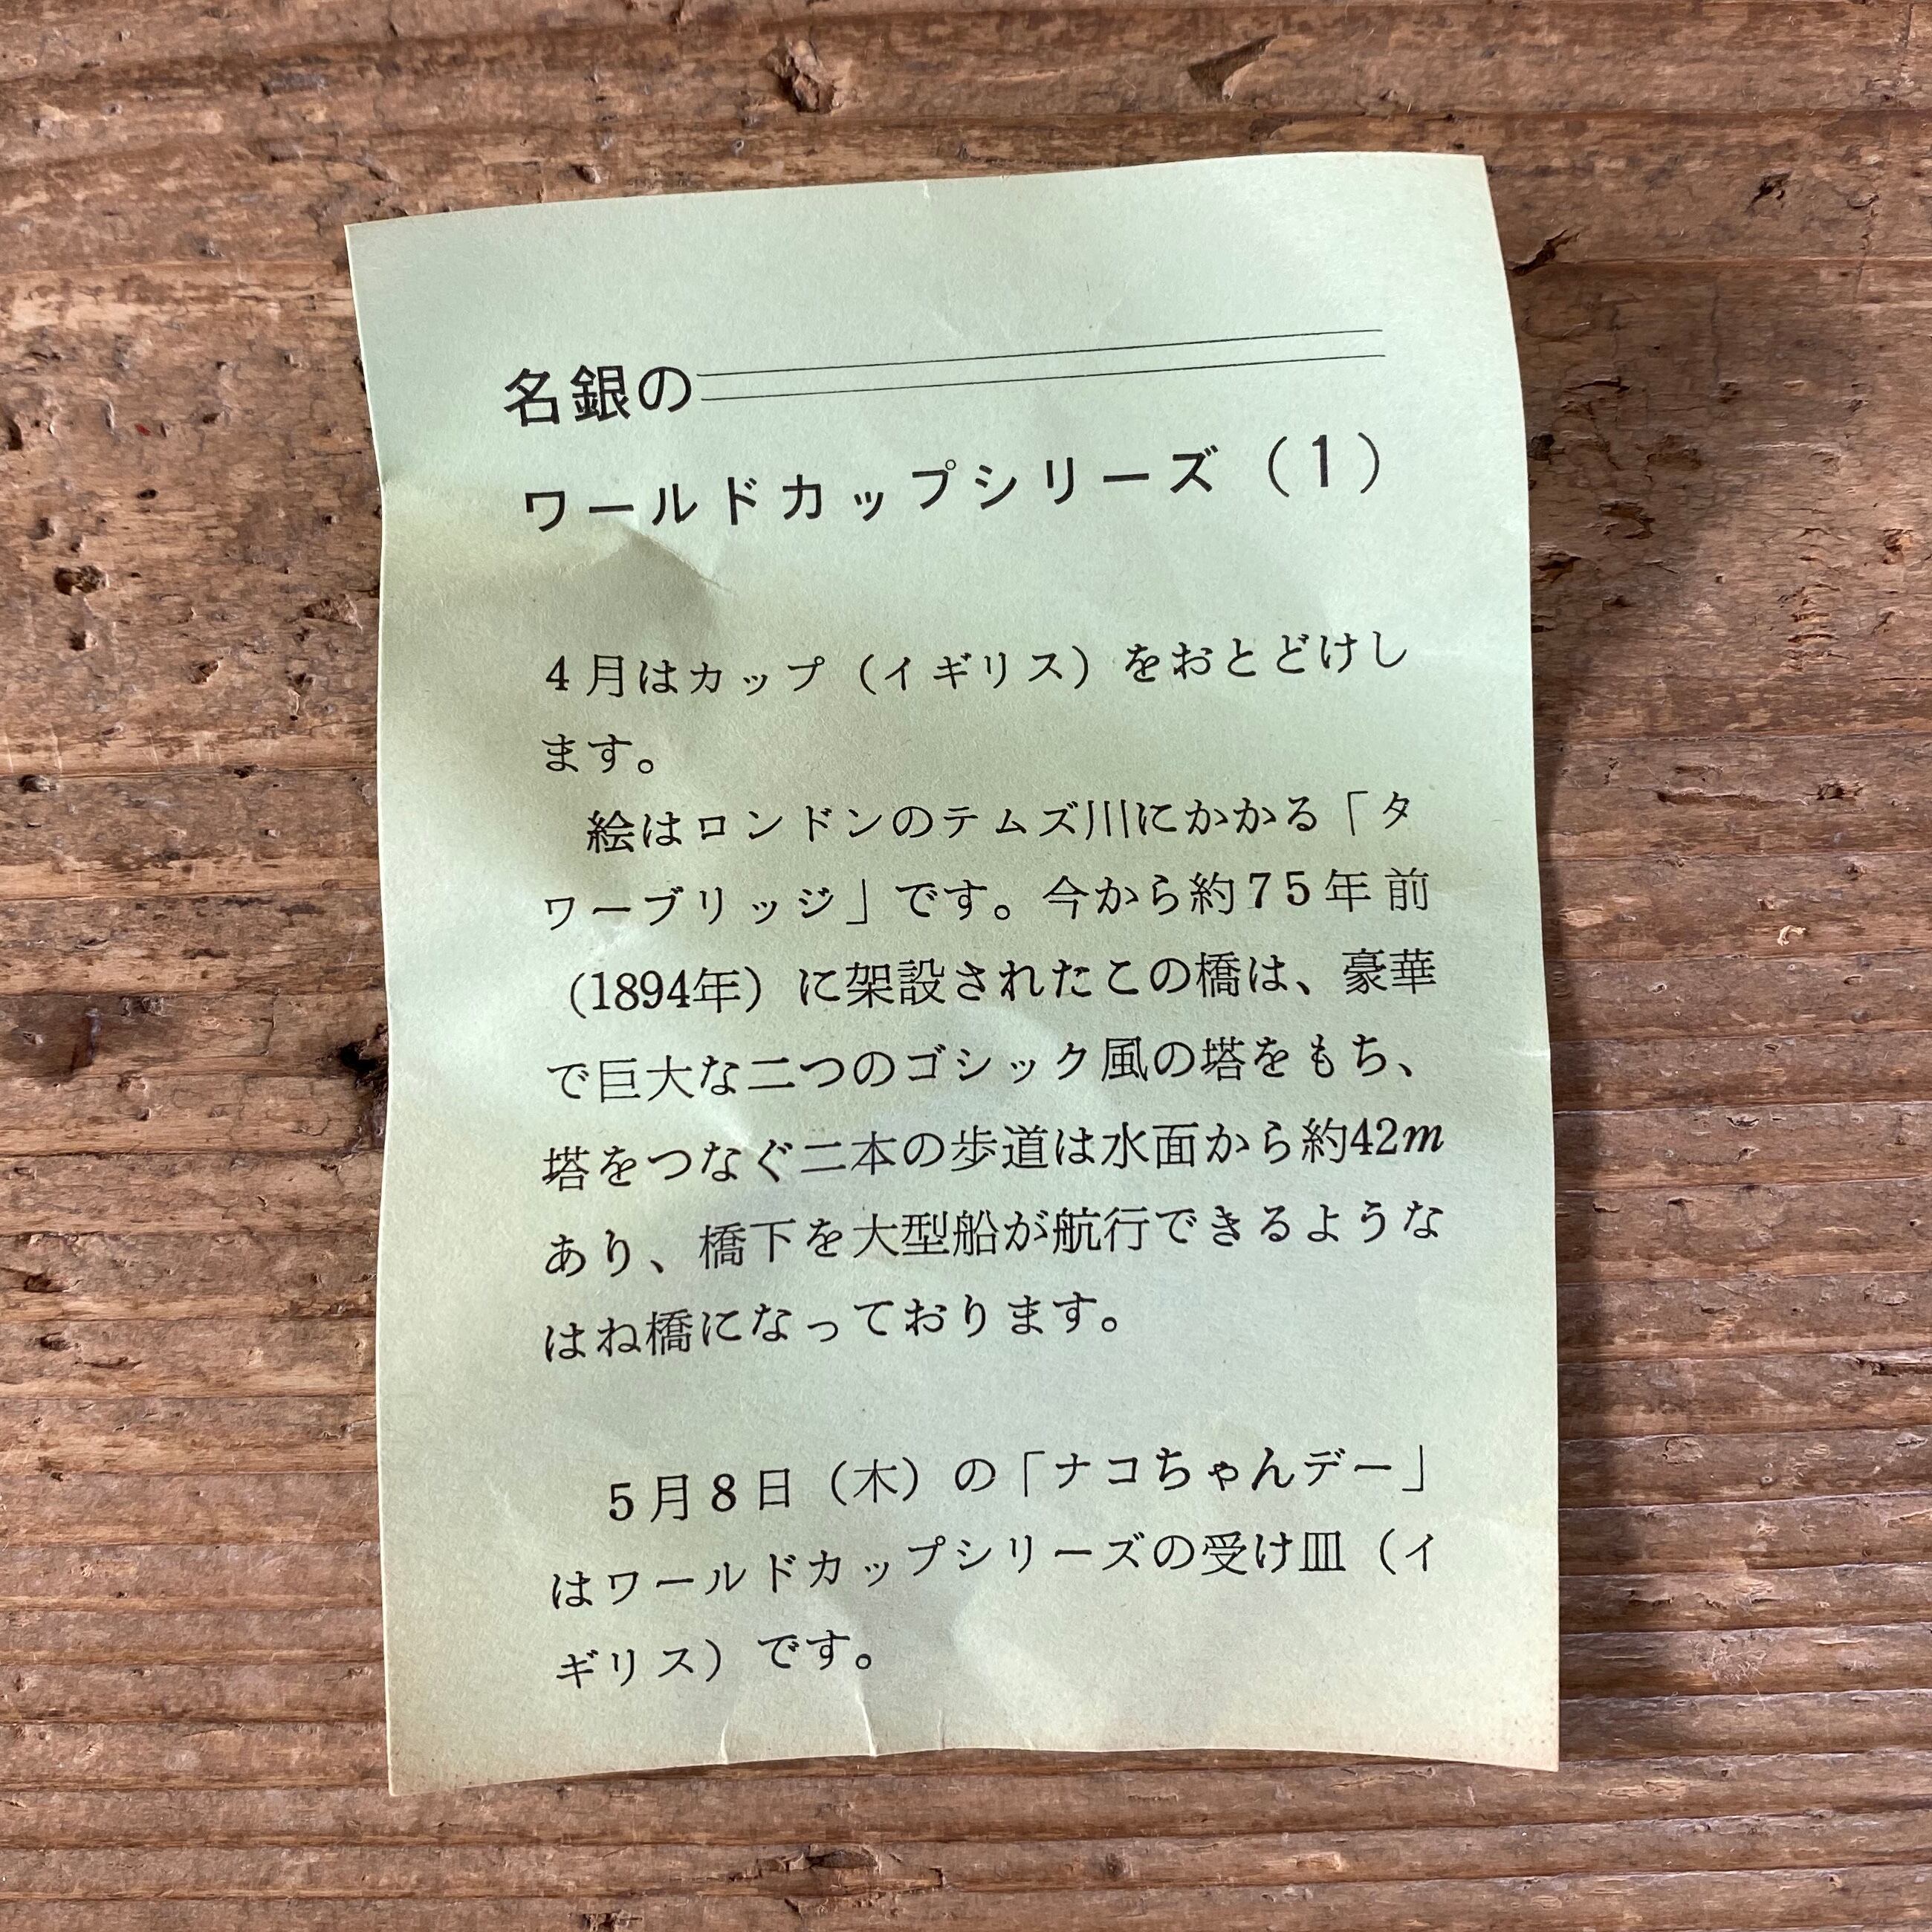 名銀の
ワールドカップシリーズ（1）
4月はカップ（イギリス）をおとどけし
ます。
絵はロンドンのテムズ川にかかる「タ
ワーブリッジ」です。今から約75年前
（1894年）に架設されたこの橋は、豪華
で巨大な二つのゴシック風の塔をもち、
塔をつなぐ二本の歩道は水面から約42m
あり、橋下を大型船が航行できるような
はね橋になっております。
5月8日（木）の「ナコちゃんデー」
はワールドカップシリーズの受け皿（イ
ギリス）です。